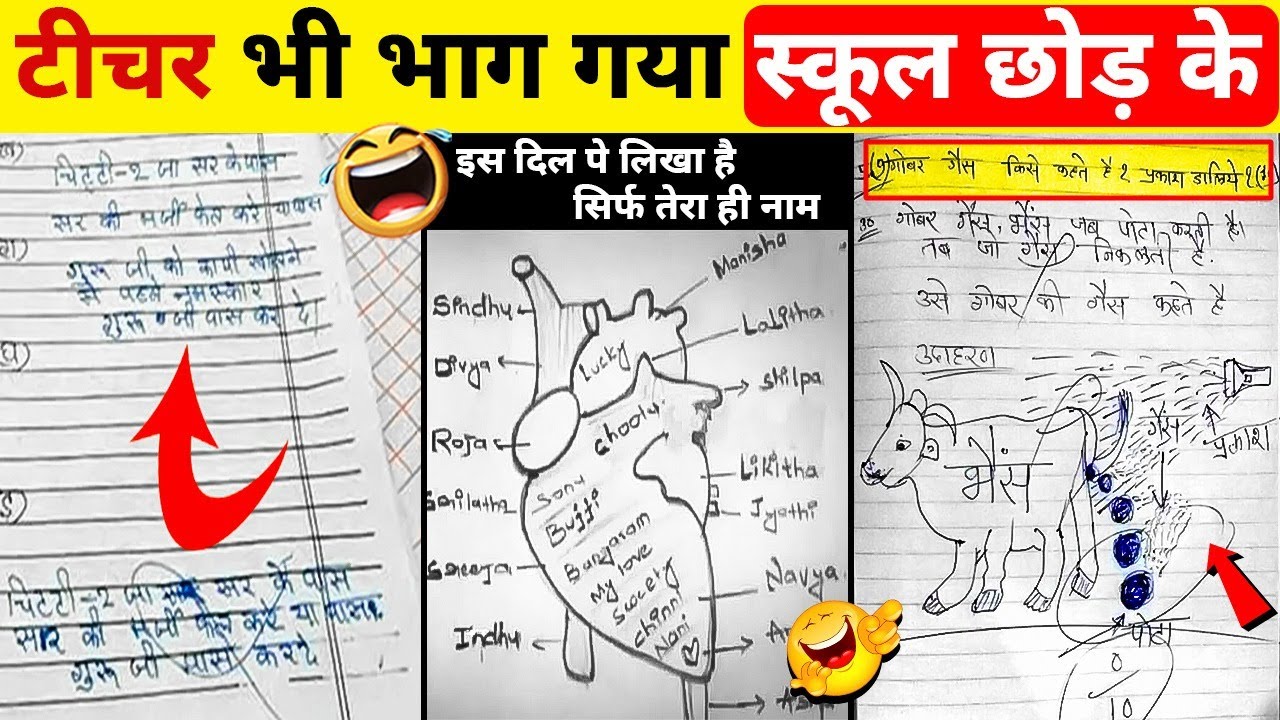 टीचर भी भाग गया स्कूल छोड़ के
चिटटी-२ जा सर के पास
सर की मर्जी फेल करे या पास
गुरू जी को कापी खोलने
से पहले नमस्कार
गुरू जी पास कर दे।
चिटटी-२ जा सर के पास
सर की मर्जी फेल करे या पास
गुरू जी पास करदे
इस दिल पे लिखा है
सिर्फ तेरा ही नाम
Manisha
Sindhu
Lalitha
Lucky
Divya
Shilpa
chooly
Roja
Likitha
Sony
Bujji
Jyathi
Bangaram
My love
Navya
Sweety
chinni
Indhu
Nani
गोबर गैस किसे कहते है ? प्रकाश डालिये ?
उ० गोबर गैस, भैंस जब पोटा करती है।
तब जो गैस निकलती है.
उसे गोबर की गैस कहते है
उदाहरण
भैंस
गैस
प्रकाश
पोटा
0
10